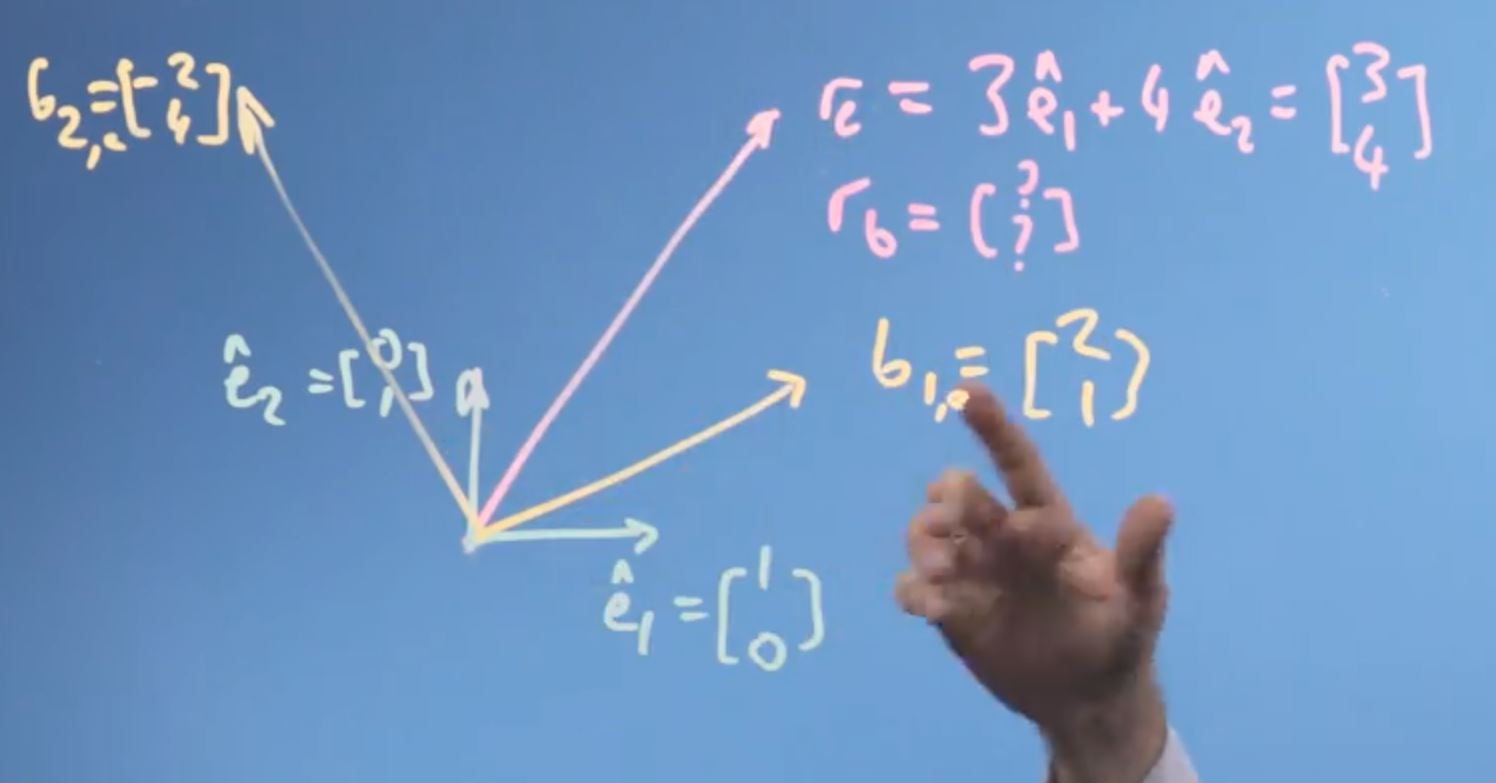 b₂,ₑ = [-2 4]
rₑ = 3ê₁ + 4ê₂ = [3 4]
r_b = [? ?]
ê₂ = [0 1]
b₁,ₑ = [2 1]
ê₁ = [1 0]